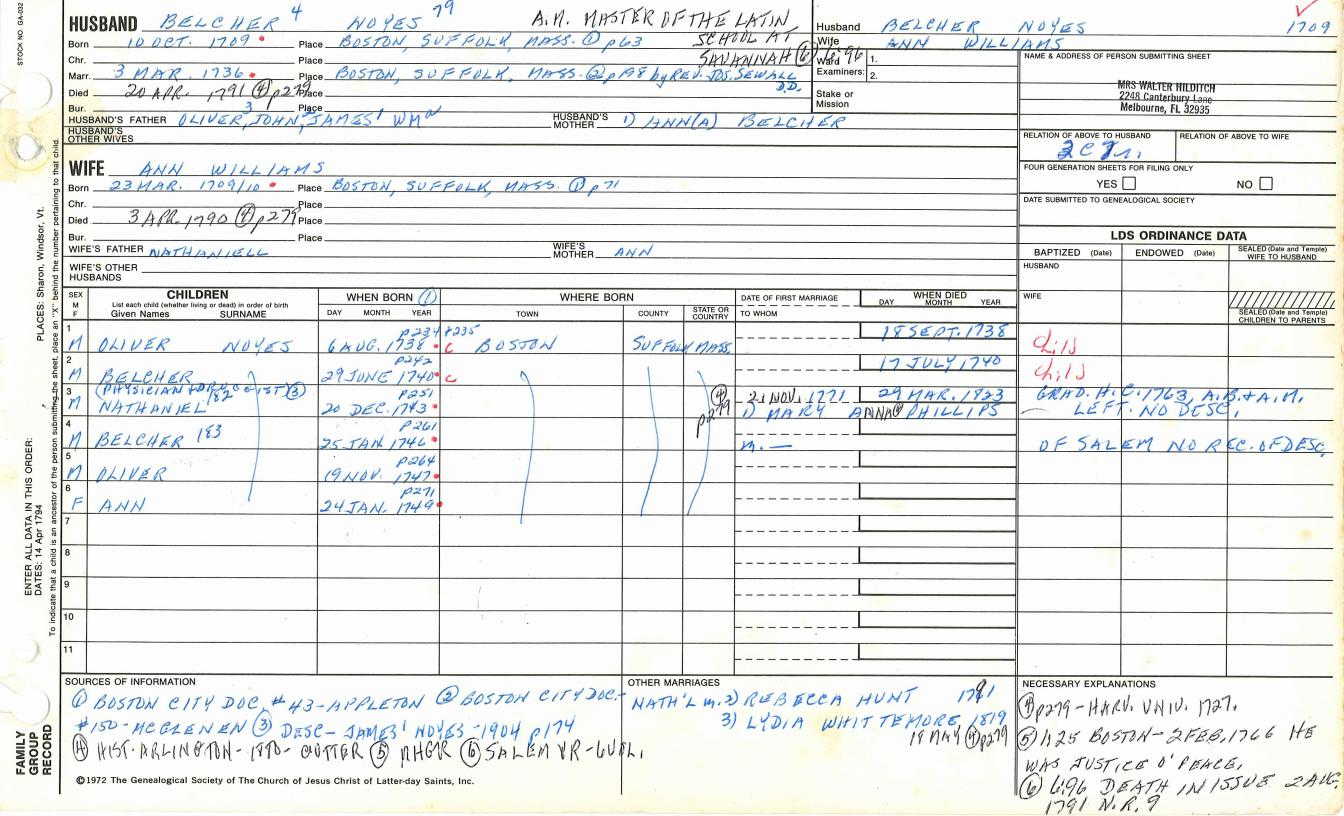 STOCK NO. GA-032
HUSBAND BELCHER 4 NOYES 79 A.M. MASTER OF THE LATIN
Born 10 OCT. 1709 Place BOSTON, SUFFOLK, MASS. ① p63 SCHOOL AT
Chr. Place SAVANNAH ⑥ 4:96
Marr. 3 MAR. 1736 Place BOSTON, SUFFOLK, MASS. ② p198 by REV. JOS. SEWALL D.D.
Died 20 APR. 1791 ④ p279 Place
Bur. Place
HUSBAND'S FATHER OLIVER,3 JOHN,2 JAMES1 WMa HUSBAND'S MOTHER 1) ANN(A) BELCHER
HUSBAND'S OTHER WIVES
WIFE ANN WILLIAMS
Born 23 MAR. 1709/10 Place BOSTON, SUFFOLK, MASS. ① p71
Chr. Place
Died 3 APR. 1790 ④ p279 Place
Bur. Place
WIFE'S FATHER NATHANIELL WIFE'S MOTHER ANN
WIFE'S OTHER HUSBANDS
Husband BELCHER NOYES 1709
Wife ANN WILLIAMS
Ward 1.
Examiners: 2.
Stake or Mission
NAME & ADDRESS OF PERSON SUBMITTING SHEET
MRS WALTER HILDITCH
2248 Canterbury Lane
Melbourne, FL 32935
RELATION OF ABOVE TO HUSBAND RELATION OF ABOVE TO WIFE
FOUR GENERATION SHEETS FOR FILING ONLY
YES NO
DATE SUBMITTED TO GENEALOGICAL SOCIETY
LDS ORDINANCE DATA
BAPTIZED (Date) ENDOWED (Date) SEALED (Date and Temple) WIFE TO HUSBAND
HUSBAND
WIFE
SEALED (Date and Temple) CHILDREN TO PARENTS
SEX M F CHILDREN WHEN BORN ① WHERE BORN DATE OF FIRST MARRIAGE WHEN DIED
List each child (whether living or dead) in order of birth
Given Names SURNAME DAY MONTH YEAR TOWN COUNTY STATE OR COUNTRY TO WHOM DAY MONTH YEAR
1 p234 + 235 18 SEPT. 1738
M OLIVER NOYES 6 AUG. 1738 c BOSTON SUFFOLK MASS. child
2 p242 17 JULY 1740
M BELCHER 29 JUNE 1740 c child
3 (PHYSICIAN + DRUGGIST) ③ p251 ④ p279 21 NOV. 1771 29 MAR. 1823 GRAD. H.C. 1763, A.B. & A.M.
M NATHANIEL 182 20 DEC. 1743 1) MARY ANNA④ PHILLIPS LEFT NO DESC.
4 p261
M BELCHER 183 25 JAN. 1746 m. — OF SALEM NO REC. OF DESC.
5 p264
M OLIVER 19 NOV. 1747
6 p271
F ANN 24 JAN. 1749
7
8
9
10
11
SOURCES OF INFORMATION
① BOSTON CITY DOC. #43-APPLETON ② BOSTON CITY DOC.-
#150-MCGLENEN ③ DESC-JAMES1 NOYES-1904 p174
④ HIST-ARLINGTON-1880-CUTTER ⑤ NHGR ⑥ SALEM VR-
©1972 The Genealogical Society of The Church of Jesus Christ of Latter-day Saints, Inc.
OTHER MARRIAGES
NATH'L m. 2) REBECCA HUNT 1781
3) LYDIA WHITTEMORE 1819
18 MAY ④ p279
NECESSARY EXPLANATIONS
④ p279-HARV. UNIV. 1727.
⑤ 4:25 BOSTON-2 FEB, 1766 HE
WAS JUSTICE O' PEACE.
⑥ 4:96 DEATH IN ISSUE 2 AUG.
1791 N.R. 9
ENTER ALL DATA IN THIS ORDER:
DATES: 14 Apr 1794 PLACES: Sharon, Windsor, Vt.
To indicate that a child is an ancestor of the person submitting the sheet, place an "X" behind the number pertaining to that child.
FAMILY GROUP RECORD